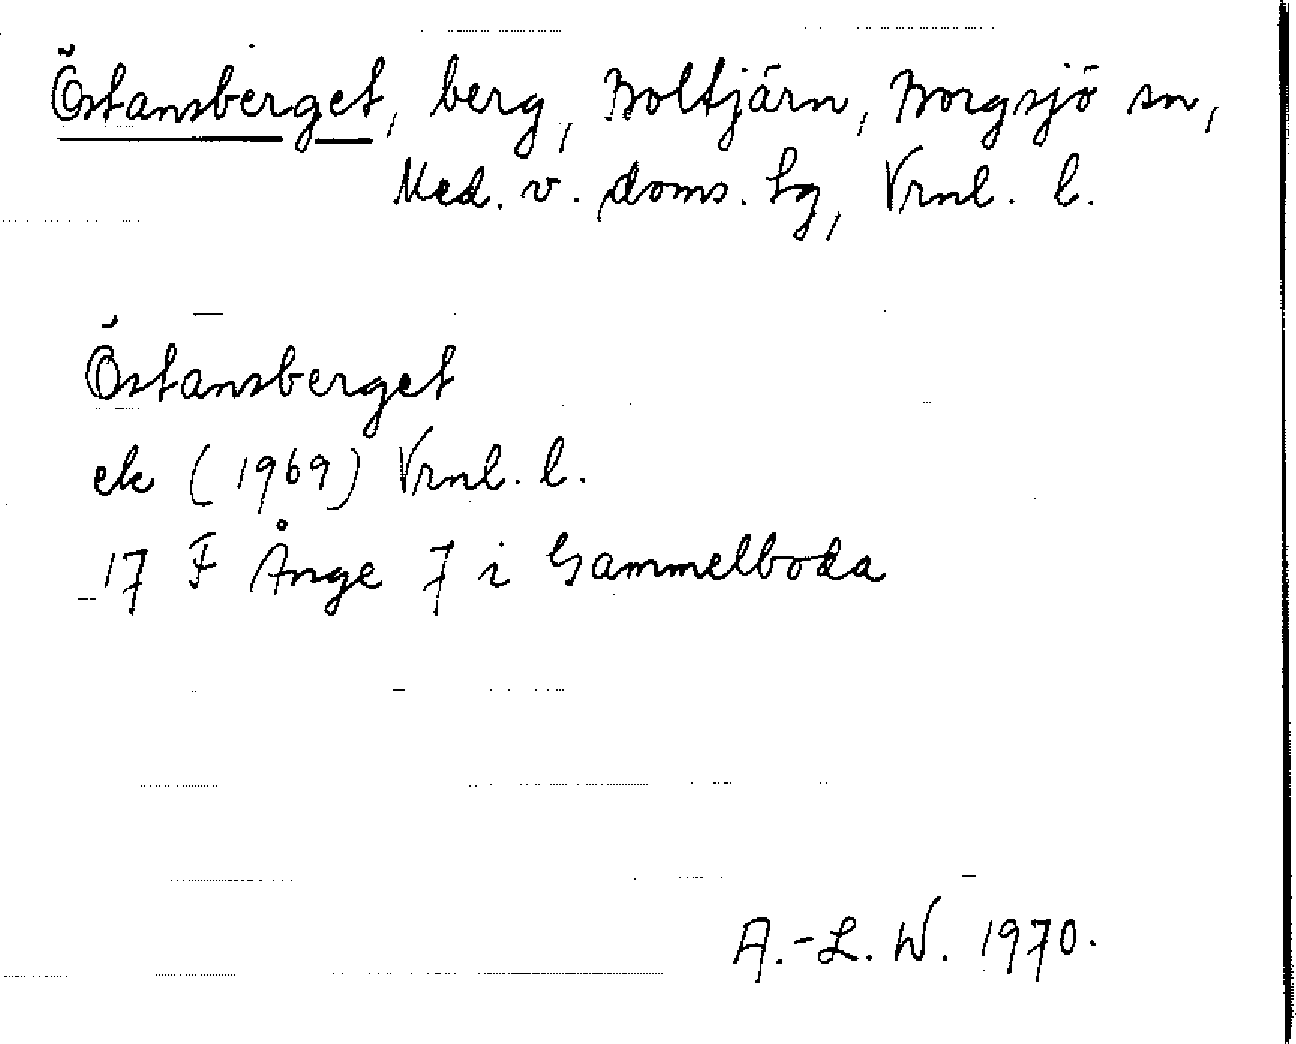 Östansberget, berg, Boltjärn, Borgsjö sn,
Med. v. doms. lg, Vrnl. l.
Östansberget
ek (1969) Vrnl. l.
17 F Ånge 7 i Gammelboda
A.-L. W. 1970.